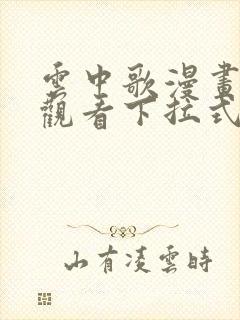 雲中歌漫畫
觀看下拉式
山有凌雲時